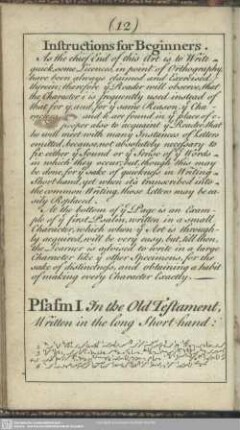 (12)
Instructions for Beginners.
As the chief End of this Art is to Write
quick, some Licences in point of Orthography
have been always claimed and Exercised
therein; therefore yͤ Reader will observe, that
the Character is frequently used instead of
that for yͤ and for yͤ same Reason yͤ Cha-
and k are found in yͤ place of
proper also to acquaint yͤ Reader that
he will meet with many Instances of Letters
omitted, because not absolutely necessary to
fix either yͤ Sound or yͤ Sense of yͤ Words
in which they occur; but, though this may
be done for yͤ sake of quickness in Writing
Short hand, yet when it's transcribed into
the common Writing, those Letters may be ea-
sily Replaced.
At the bottom of yͤ Page is an Exam-
ple of yͤ first Psalm, written in a small
Character, which when yͤ Art is through-
ly acquired, will be very easy, but, till then,
the Learner is advised to write in a large
Character like yͤ other Specimens, for the
sake of distinctness, and obtaining a habit
of making every Character Exactly.
Psalm I. In the Old Testament,
Written in the long Short-hand: